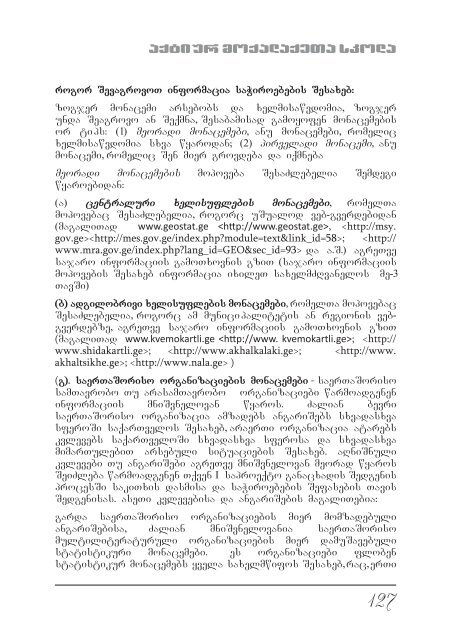 აქტიურ მოქალაქეთა სკოლა
როგორ შევაგროვოთ ინფორმაცია საჭიროებების შესახებ:
ზოგჯერ მონაცემი არსებობს და ხელმისაწვდომია, ზოგჯერ
უნდა შეაგროვო ან შექმნა, შესაბამისად გამოყოფენ მონაცემების
ორ ტიპს: (1) მეორადი მონაცემები, ანუ მონაცემები, რომელიც
ხელმისაწვდომია სხვა წყაროდან; (2) პირველადი მონაცემი, ანუ
მონაცემი, რომელიც შენ მიერ გროვდება და იქმნება
მეორადი მონაცემების მოპოვება შესაძლებელია შემდეგი
წყაროებიდან:
(ა) ცენტრალური ხელისუფლების მონაცემები, რომელთა
მოპოვებაც შესაძლებელია, როგორც უშუალოდ ვებ-გვერდებიდან
(მაგალითად www.geostat.ge <http://www.geostat.ge>, <http://msy.
gov.ge><http://mes.gov.ge/index.php?module=text&link_id=58>; <http://
www.mra.gov.ge/index.php?lang_id=GEO&sec_id=93> და ა.შ.) აგრეთვე
საჯარო ინფორმაციის გამოთხოვნის გზით (საჯარო ინფორმაციის
მოპოვების შესახებ ინფორმაცია იხილეთ სახელმძღვანელოს მე-3
თავში)
(ბ) ადგილობრივი ხელისუფლების მონაცემები, რომელთა მოპოვებაც
შესაძლებელია, როგორც ამ მუნიციპალიტეტის ან რეგიონის ვებ-
გვერდებზე, აგრეთვე საჯარო ინფორმაციის გამოთხოვნის გზით
(მაგალითად www.kvemokartli.ge <http://www. kvemokartli.ge>; <http://
www.shidakartli.ge>; <http://www.akhalkalaki.ge>; <http://www.
akhaltsikhe.ge>; <http://www.nala.ge> )
(გ). საერთაშორისო ორგანიზაციების მონაცემები - საერთაშორისო
სამთავრობო თუ არასამთავრობო ორგანიზაციები წარმოადგენენ
ინფორმაციის მნიშვნელოვან წყაროს. ძალიან ბევრი
საერთაშორისო ორგანიზაცია ამზადებს ანგარიშებს სხვადასხვა
სფეროში საქართველოს შესახებ, არაერთი ორგანიზაცია ატარებს
კვლევებს საქართველოში სხვადასხვა სფეროსა და სხვადასხვა
მიმართულებით არსებული სიტუაციების შესახებ. აღნიშნული
კვლევები თუ ანგარიშები აგრეთვე მნიშვნელოვან მეორად წყაროს
შეიძლება წარმოადგენდნენ თქვენ I საპროექტო განაცხადის შედგენის
პროცესში საკითხის დასმისა და საჭიროებების შეფასების თავის
შედგენისას. ასეთი კვლევებისა და ანგარიშების მაგალითებია:
გარდა საერთაშორისო ორგანიზაციების მიერ მომზადებული
ანგარიშებისა, ძალიან მნიშვნელოვანია საერთაშორისო
მულტილიტერატურული ორგანიზაციების მიერ დამუშავებული
სტატისტიკური მონაცემები. ეს ორგანიზაციები ფლობენ
სტატისტიკურ მონაცემებს ყველა სახელმწიფოს შესახებ, რაც, ერთი
127